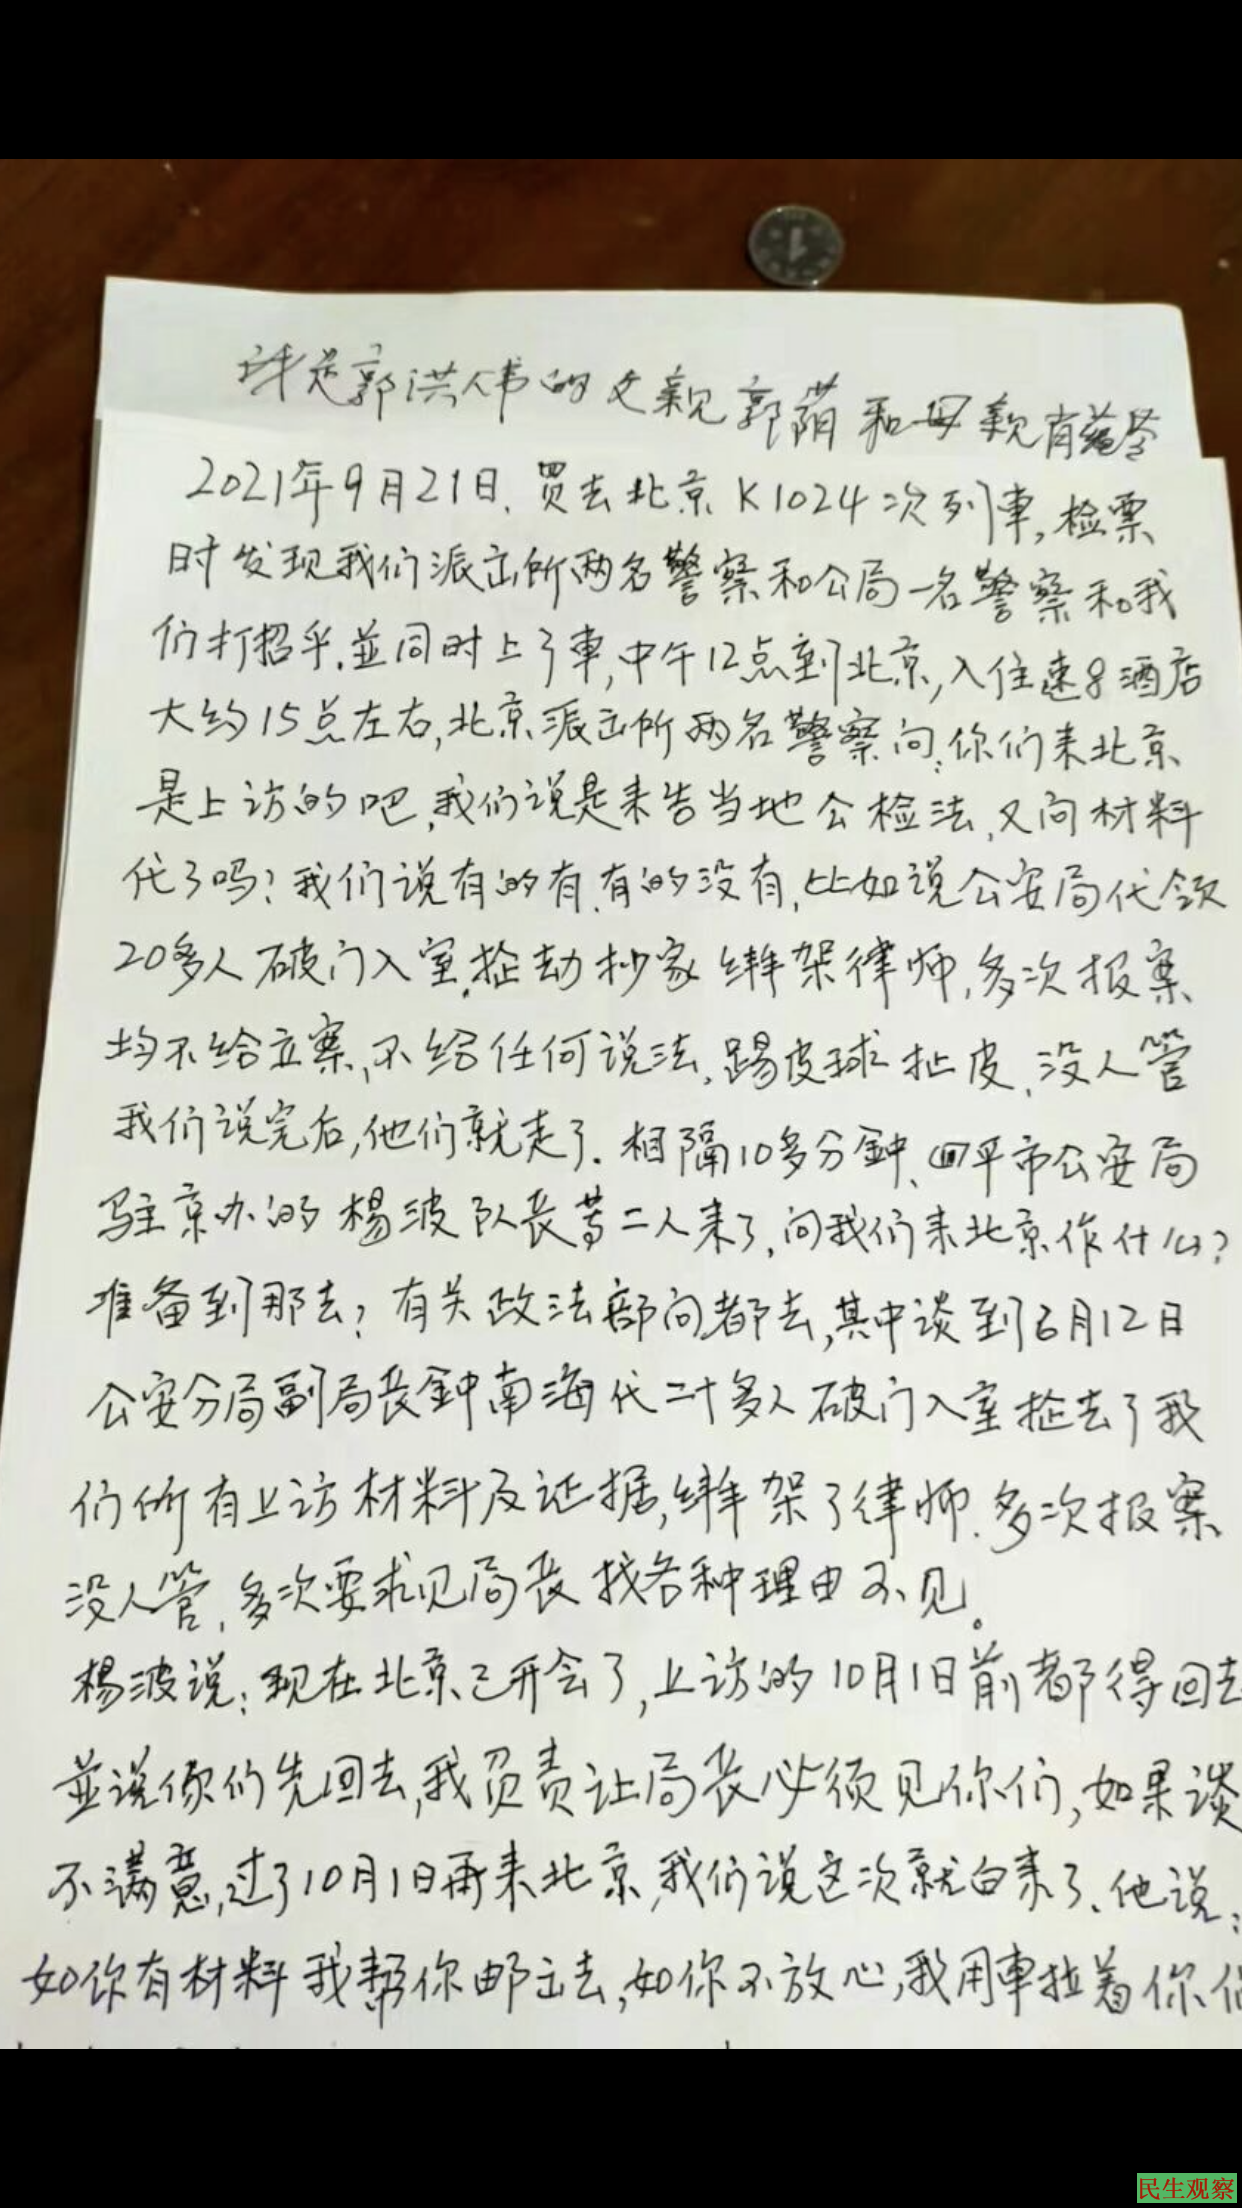 我是郭洪伟的父亲郭荫和母亲肖蕴苓
2021年9月21日、買去北京K1024次列車,检票
时发现我们派出所两名警察和公局一名警察和我
们打招乎.並同时上了車,中午12点到北京,入住速8酒店
大约15点左右,北京派出所两名警察问:你们来北京
是上访的吧,我们说是来告当地公检法,又问材料
代了吗?我们说有的有.有的没有,比如说公安局代领
20多人破门入室.抢劫抄家绑架律师,多次报案
均不给立案,不给任何说法,踢皮球扯皮,没人管
我们说完后,他们就走了.相隔10多分鈡、四平市公安局
驻京办的楊波队长等二人来了,问我们来北京作什么?
准备到那去?有关政法部问都去,其中谈到6月12日
公安分局副局长鈡南海代二十多人破门入室抢去了我
们所有上访材料及证据,绑架了律师.多次报案
没人管,多次要求见局长找各种理由不见。
楊波说:现在北京已开会了,上访的10月1日前都得回去
並说你们先回去,我负责让局长必须见你们,如果谈
不满意,过了10月1日再来北京,我们说这次就白来了、他说:
如你有材料我帮你邮出去,如你不放心,我用車拉着你们
民生观察